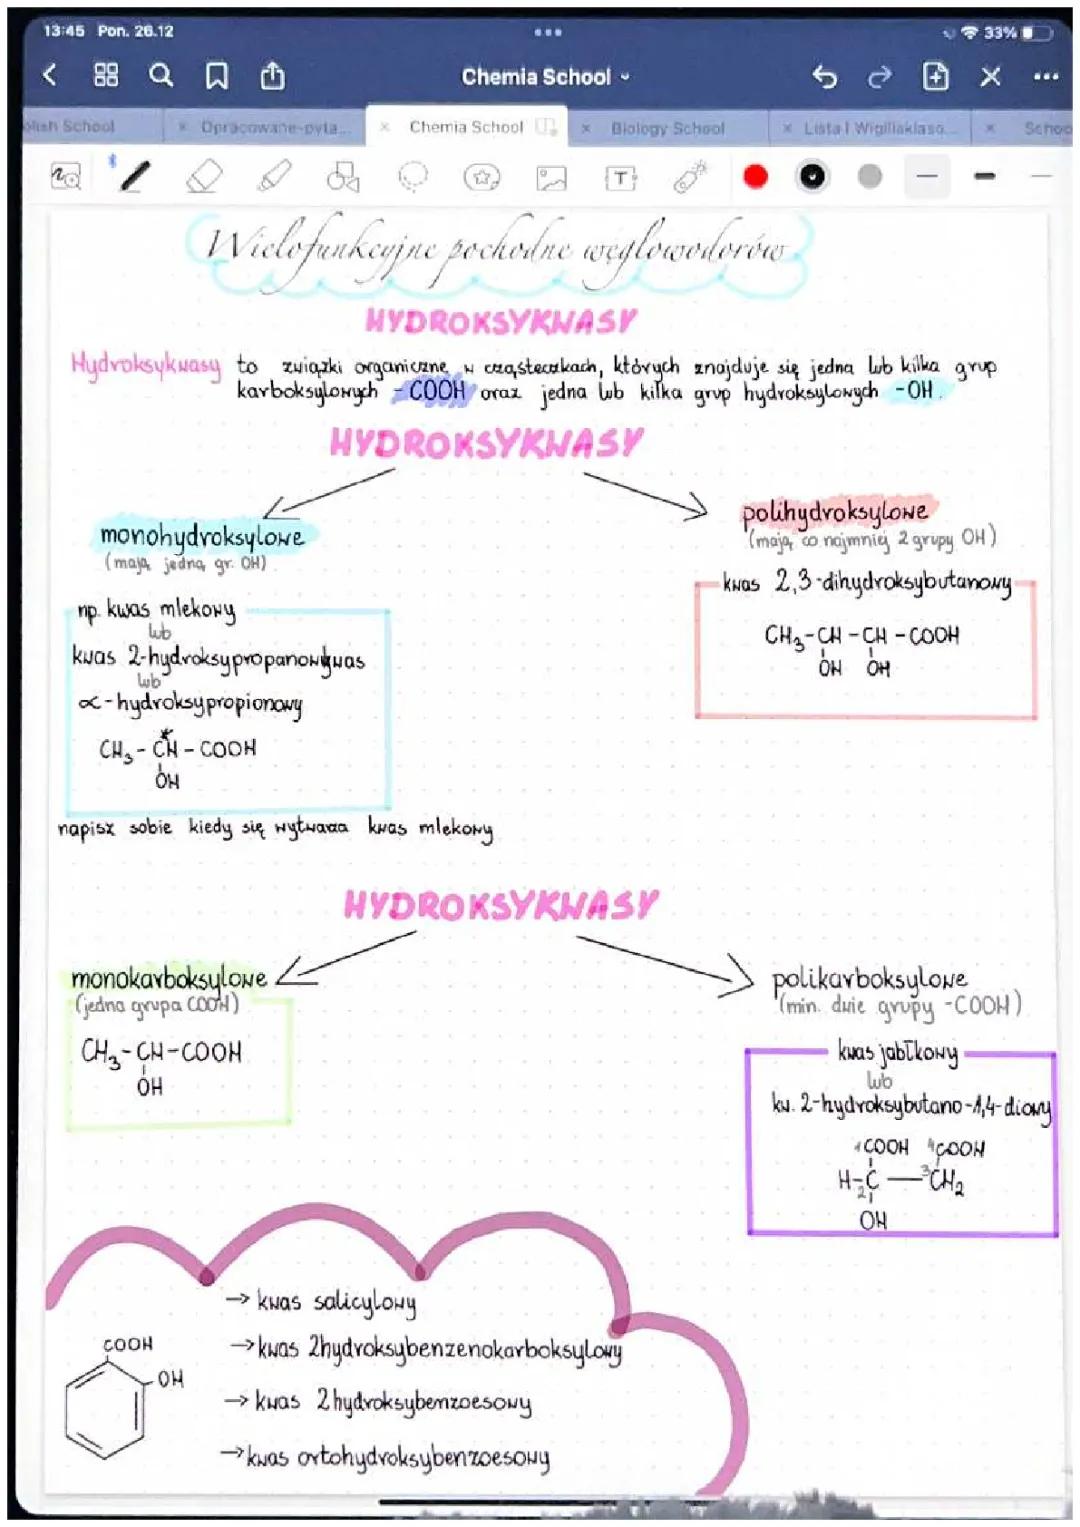 13:45 Pon. 26.12
33%
Chemia School
olish School
Opracowane-pyta...
Chemia School
Biology School
Lista I Wigiliaklaso...
Schoo
Wielofunkcyjne pochodne węglowodorów
HYDROKSYKWASY
Hydroksykwasy to związki organiczne, w cząsteczkach, których znajduje się jedna lub kilka grup
karboksylowych -COOH oraz jedna lub kilka grup hydroksylowych -OH.
HYDROKSYKWASY
monohydroksylowe
(mają jedną gr. OH)
polihydroksylowe
(mają co najmniej 2 grupy OH)
np. kwas mlekowy
lub
kwas 2-hydroksypropanowy
lub
kwas
∝-hydroksypropionowy
*
CH₃-CH-COOH
OH
kwas 2,3-dihydroksybutanowy
CH₃-CH-CH-COOH
OH OH
napisz sobie kiedy się wytwarza kwas mlekowy
HYDROKSYKWASY
monokarboksylowe
(jedna grupa COOH)
CH₃-CH-COOH
OH
polikarboksylowe
(min. dwie grupy -COOH)
kwas jabłkowy
lub
kw. 2-hydroksybutano-1,4-diowy
¹COOH ⁴COOH
H-₂C-³CH₂
OH
COOH
OH
→ kwas salicylowy
→ kwas 2hydroksybenzenokarboksylowy
→ kwas 2hydroksybenzoesowy
→ kwas ortohydroksybenzoesowy